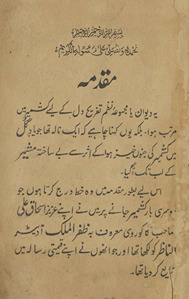 بسم اللہ الرحمن الرحیم
نحمدہ ونصلی علی رسولہ الکریم
مقدمہ
یہ دیوان یا مجموعہ نظم تفریح دل کے لیے کشمیر میں
مرتب ہوا، بلکہ یوں کہنا چاہیے کہ ایک نالہ تھا جو
میں کشمیر کی جنوں خیز ہوا کے اثر سے بے ساختہ مشیر
کے لب تک آگیا۔
اس لیے بطور مقدمہ میں وہ خط درج کرتا ہوں جو
دوسری بار کشمیر جانے پر میں نے اپنے عزیز اسحاق علی
صاحب کاکوروی معروف بہ ظفر الملک اڈیٹر
الناظر کو لکھا تھا اور جو انھوں نے اپنے قیمتی رسالہ میں
شایع کر دیا تھا۔